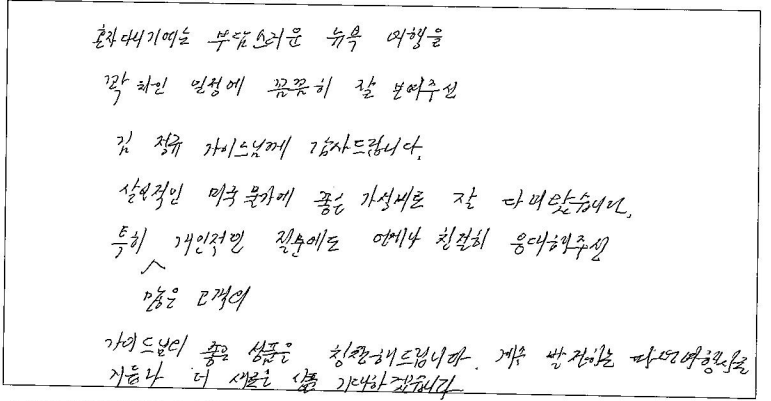 혼자 다니기에는 부담스러운 뉴욕 여행을
꽉 차인 일정에 꼼꼼히 잘 보여주신
김정규 가이드님께 감사드립니다.
살인적인 미국 물가에 좋은 가성비로 잘 다녀왔습니다.
특히 개인적인 질문에도 언제나 친절히 응대해주신
많은 고객의
가이드님의 좋은 성품은 칭찬해드립니다. 계속 발전하는
더 새로운 상품 기대하겠습니다